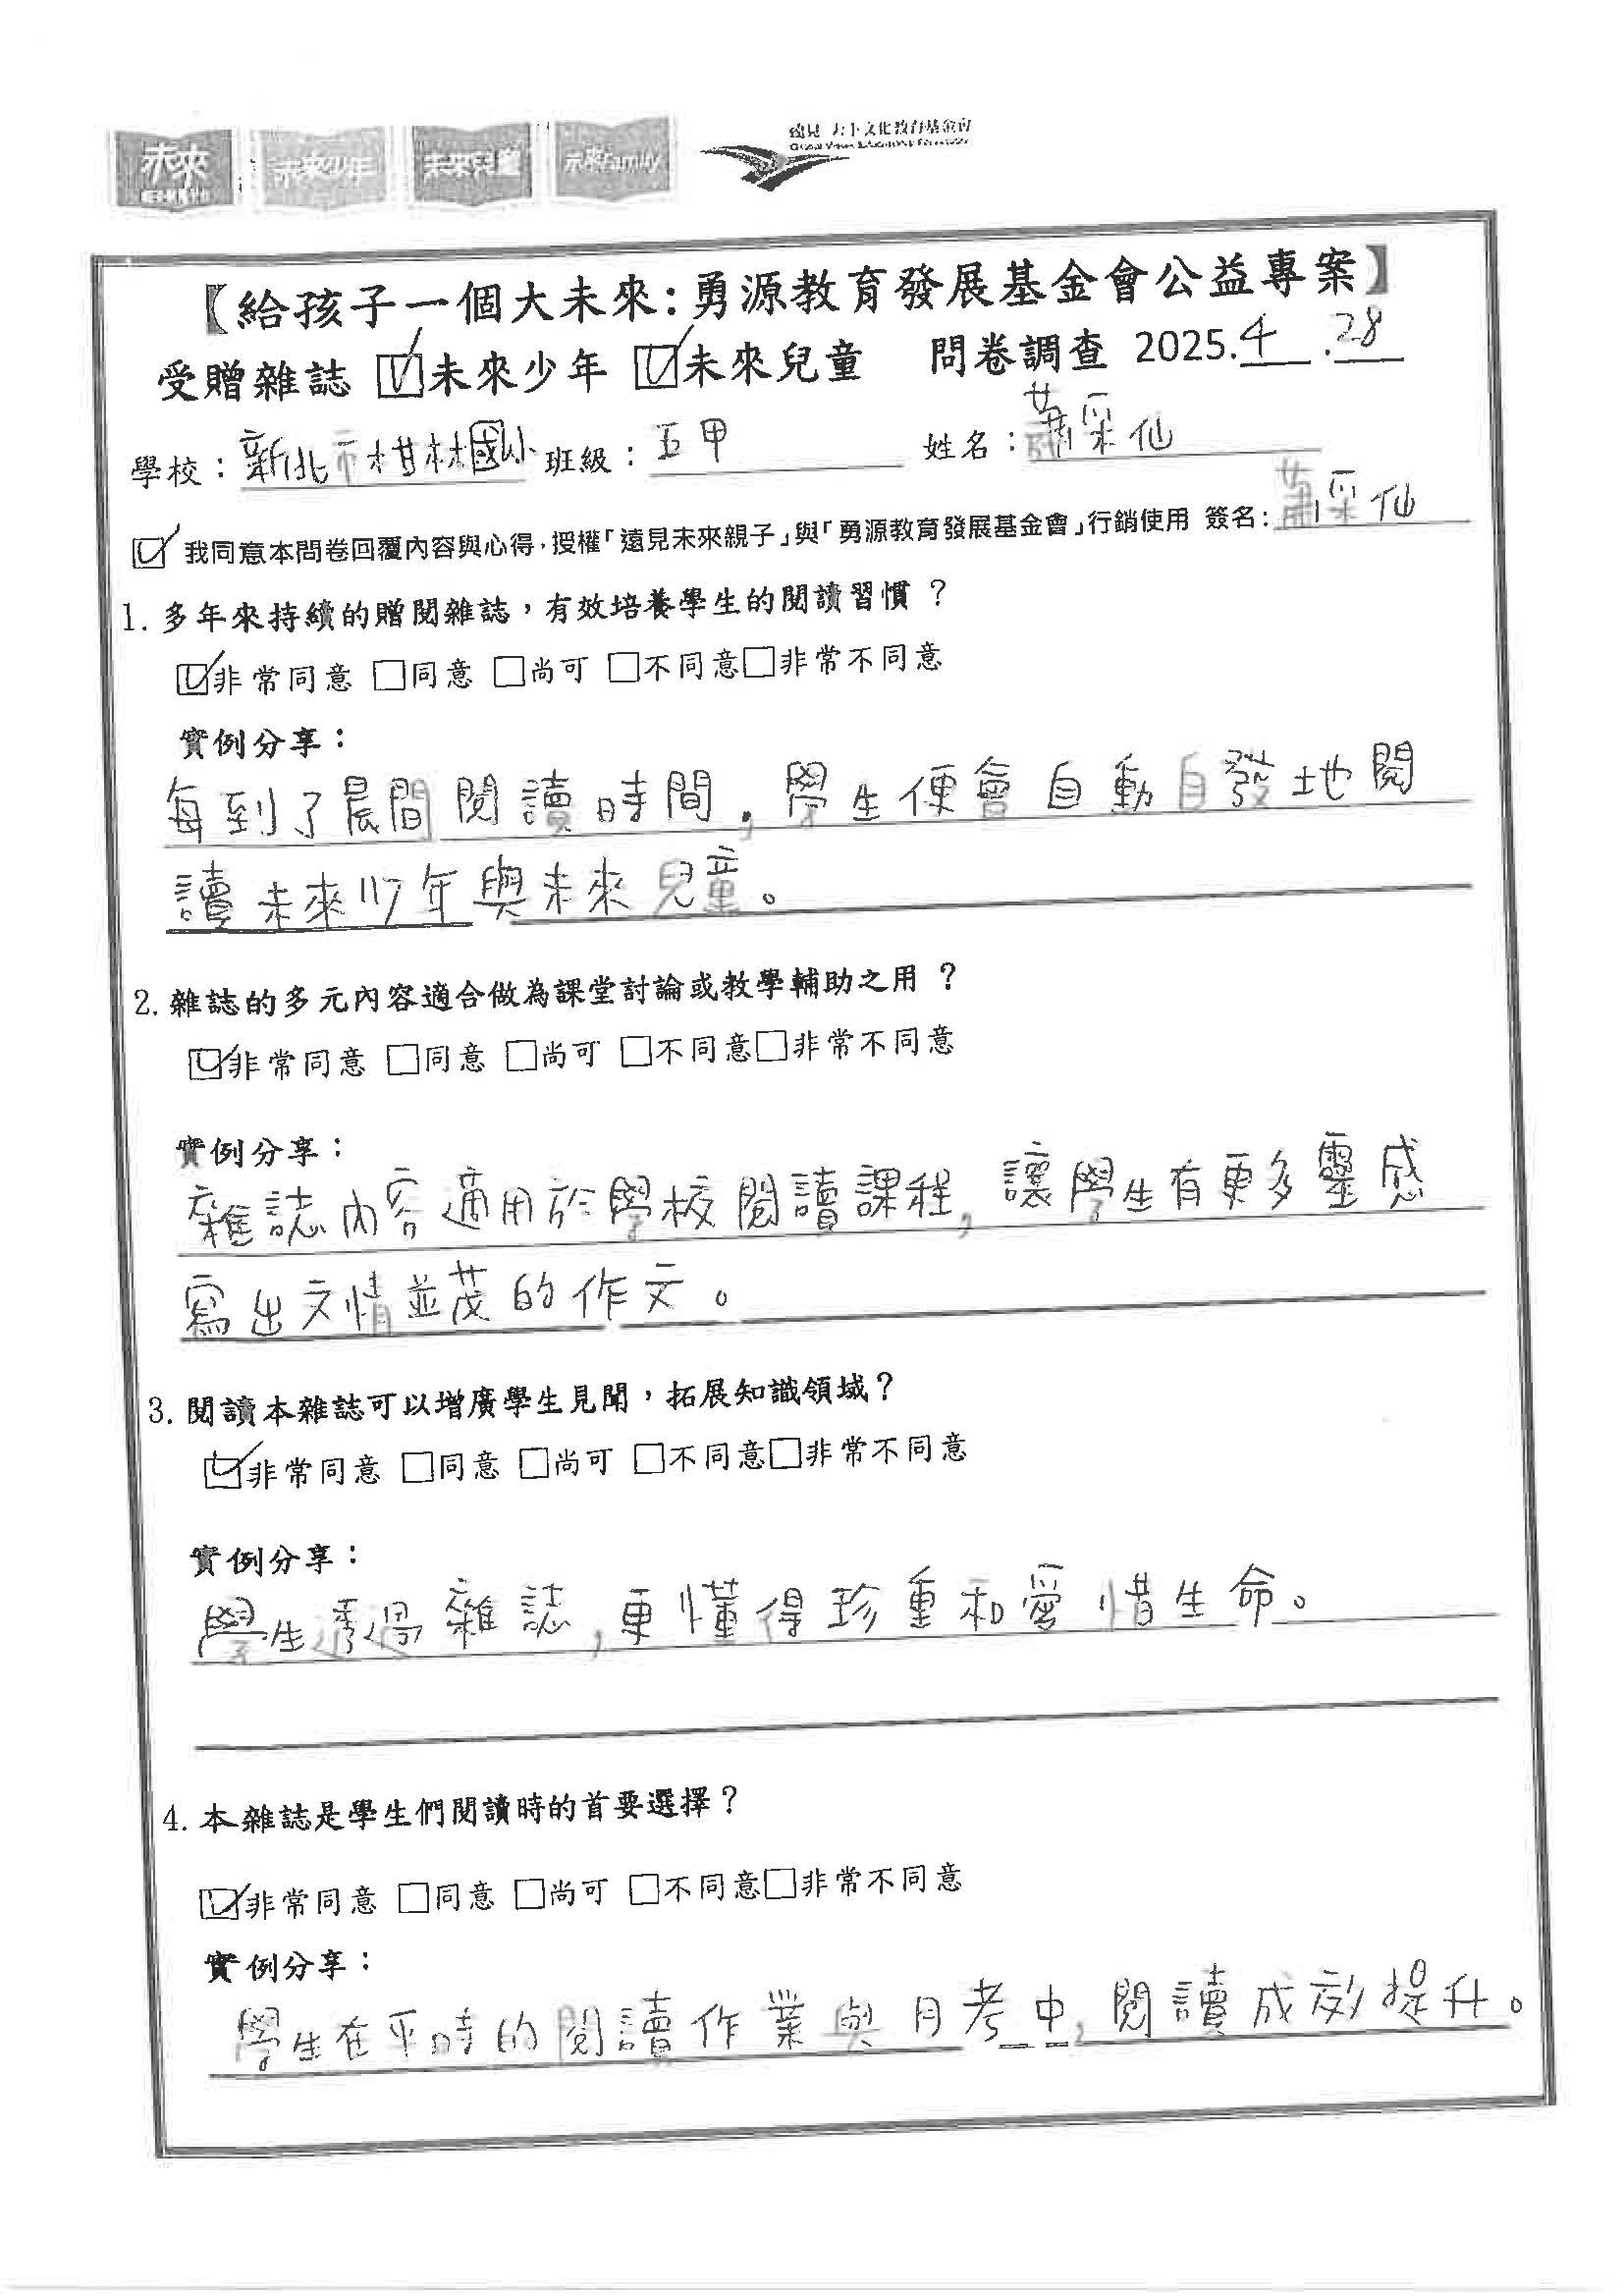 未來
未來少年
未來兒童
未來Family
遠見‧天下文化教育基金會
【給孩子一個大未來:勇源教育發展基金會公益專案】
受贈雜誌 ☑未來少年 ☑未來兒童 問卷調查 2025.4.28
學校:新北市柑林國小 班級:五甲 姓名:蕭采仙
☑ 我同意本問卷回覆內容與心得,授權「遠見未來親子」與「勇源教育發展基金會」行銷使用 簽名:蕭采仙
1. 多年來持續的贈閱雜誌,有效培養學生的閱讀習慣?
☑非常同意 □同意 □尚可 □不同意□非常不同意
實例分享:
每到了晨間閱讀時間,學生便會自動自發地閱
讀未來少年與未來兒童。
2. 雜誌的多元內容適合做為課堂討論或教學輔助之用?
☑非常同意 □同意 □尚可 □不同意□非常不同意
實例分享:
雜誌內容適用於學校閱讀課程,讓學生有更多靈感
寫出文情並茂的作文。
3. 閱讀本雜誌可以增廣學生見聞,拓展知識領域?
☑非常同意 □同意 □尚可 □不同意□非常不同意
實例分享:
學生透過雜誌,更懂得珍重和愛惜生命。
4. 本雜誌是學生們閱讀時的首要選擇?
☑非常同意 □同意 □尚可 □不同意□非常不同意
實例分享:
學生在平時的閱讀作業與月考中,閱讀成效提升。